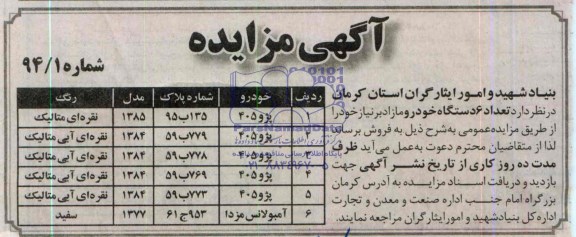 آگهی مزایده
شماره ۹۴/۱
بنیاد شهید و امور ایثارگران استان کرمان
در نظر دارد تعداد ۶ دستگاه خودرو مازاد بر نیاز خود را
از طریق مزایده عمومی به شرح ذیل به فروش برساند
لذا از متقاضیان محترم دعوت به عمل می آید ظرف
مدت ده روز کاری از تاریخ نشر آگهی جهت
بازدید و دریافت اسناد مزایده به آدرس کرمان
بزرگراه امام جنب اداره صنعت و معدن و تجارت
اداره کل بنیاد شهید و امور ایثارگران مراجعه نمایند.
ردیف خودرو شماره پلاک مدل رنگ
پژو ۴۰۵ ۱۳۵ب۹۵ ۱۳۸۵ نقره ای متالیک
پژو ۴۰۵ ۷۷۹ب۵۹ ۱۳۸۴ نقره ای آبی متالیک
پژو ۴۰۵ ۷۷۸ب۵۹ ۱۳۸۴ نقره ای آبی متالیک
پژو ۴۰۵ ۷۶۹ب۵۹ ۱۳۸۴ نقره ای آبی متالیک
۵ پژو ۴۰۵ ۷۷۳ب۵۹ ۱۳۸۴ نقره ای آبی متالیک
۶ آمبولانس مزدا ۹۵۳ج۶۱ ۱۳۷۷ سفید
ParsNamadData